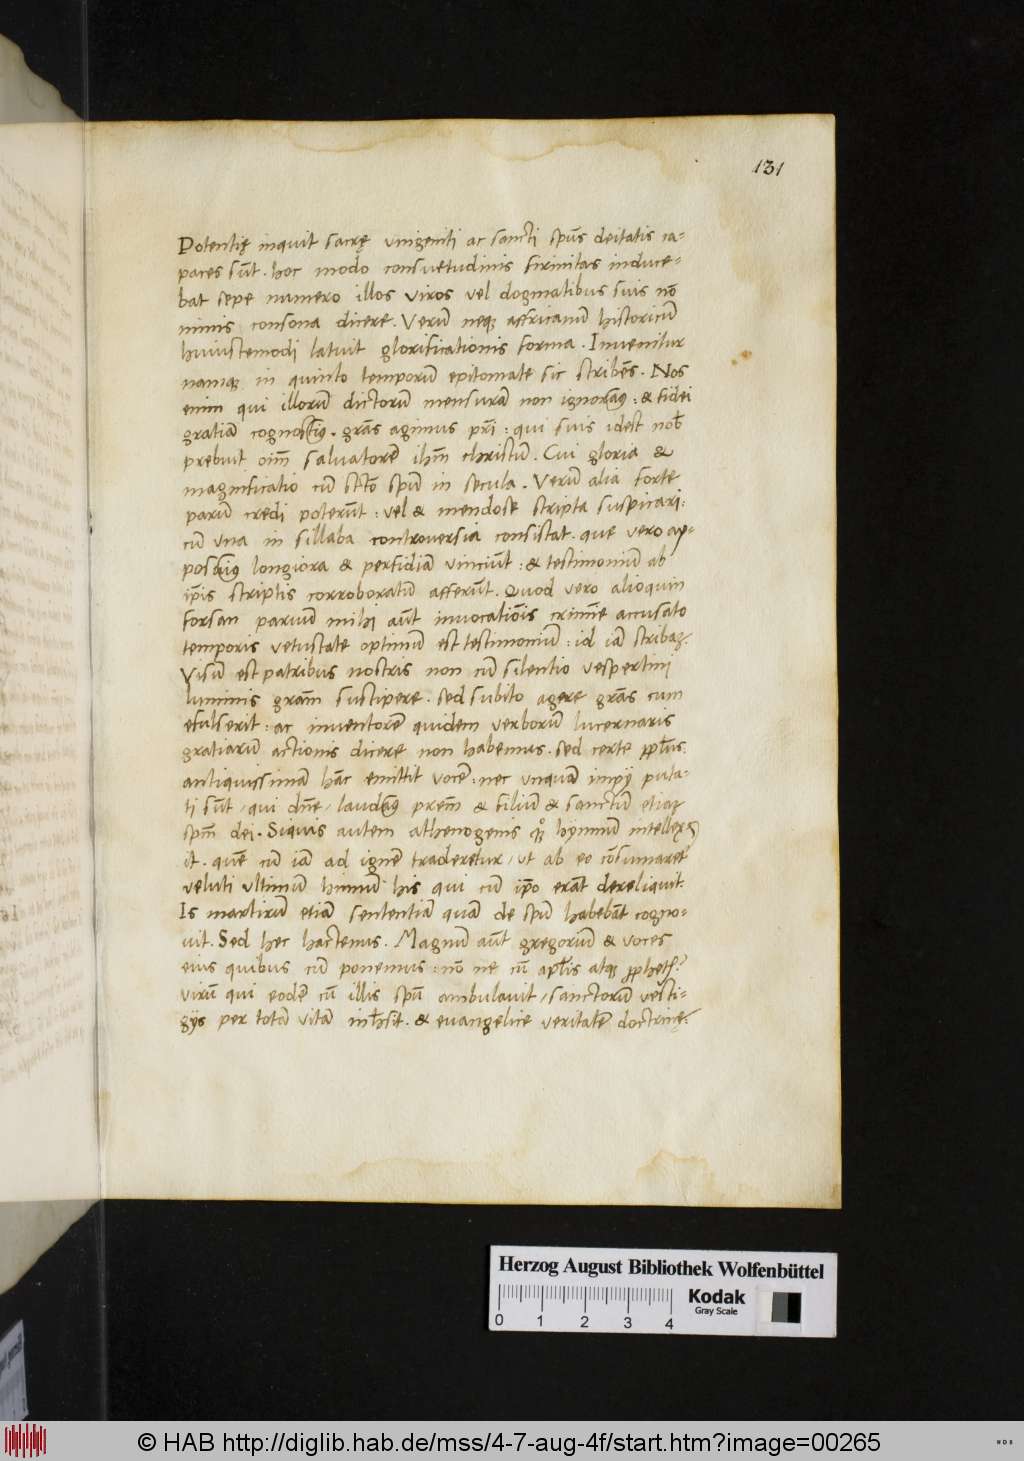 131
Potentię inquit sacrę unigeniti ac sancti spūs deitatis ca-
paces sūt. hoc modo consuetudinis firmitas induce-
bat sepe numero illos viros vel dogmatibus suis nō
nimis consona dicere. Verū neq; affricanū historicū
huiuscemodi latuit glorificationis forma. Invenitur
namq; in quinto temporū epitomate sic scribēs. Nos
enim qui illorū dictorū mensurā non ignoramus: & fidei
gratiā cognoscimus. grās agimus pr̄i: qui suis idest nob̄
prebuit oim̄ salvatorē ihm̄ christū. Cui gloria &
magnificatio cū sctō spū in secula. Verū alia forte
parū credi poterūt: vel & mendose scripta suspicari:
cū una in sillaba controversia consistat. que vero ap-
posuimus longiora & perfidiā vinciūt: & testimoniū ab
ip̄is scriptis corroboratū afferūt. Quod vero alioquin
forsan parvum mihi aūt invocatiōis crimīe accusato
temporis vetustate optimū est testimoniū: id iā scribā.
Visū est patribus nostris non cū silentio vespertini
luminis gram̄ suscipere. sed subito agere grās cum
efulserit: ac inventorē quidem verborū lucernaris
gratiarū actionis dicere non habemus. sed certe pp̄lus
antiquissimā hāc emittit vocē: nec unquā impij puta-
ti sūt / qui dn̄e / laudamus prem̄ & filiū & sanctū etiaz
spm̄ dei. Siquis autem athenogenis hymnū intellex-
it. quē cū iā ad ignē traderetur / ut ab eo cōsumaretʳ
veluti ultimū himnū his qui cū ip̄o erāt dereliquit.
Is martirū etiā sententiā quā de spū habebāt cogno-
vit. Sed hec hactenus. Magnū aūt gregoriū & voces
eius quibus cū ponemus: nō ne cū apl̄is atq; pphetis?
virū qui eodē cū illis spū ambulavit / sanctorū vesti-
gijs per totā vitā inhesit. & euangelice veritatē doctrinę:
Herzog August Bibliothek Wolfenbüttel
Kodak
Gray Scale
0 1 2 3 4
© HAB http://diglib.hab.de/mss/4-7-aug-4f/start.htm?image=00265